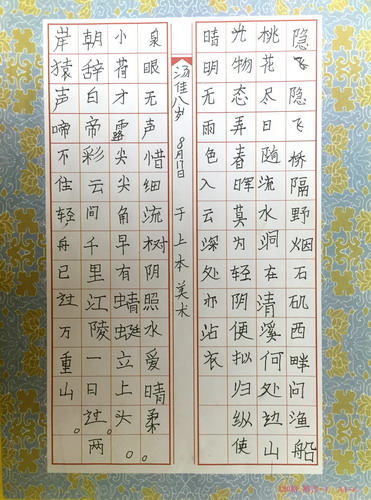 隐飞隐飞桥隔野烟石矶西畔问渔船
桃花尽日随流水洞在清溪何处边山
光物态弄春晖莫为轻阴便拟归纵使
晴明无雨色入云深处亦沾衣
汤佳八岁 8月17日 于上本美术
泉眼无声惜细流树阴照水爱晴柔。
小荷才露尖尖角早有蜻蜓立上头。
朝辞白帝彩云间千里江陵一日过。两
岸猿声啼不住轻舟已过万重山。